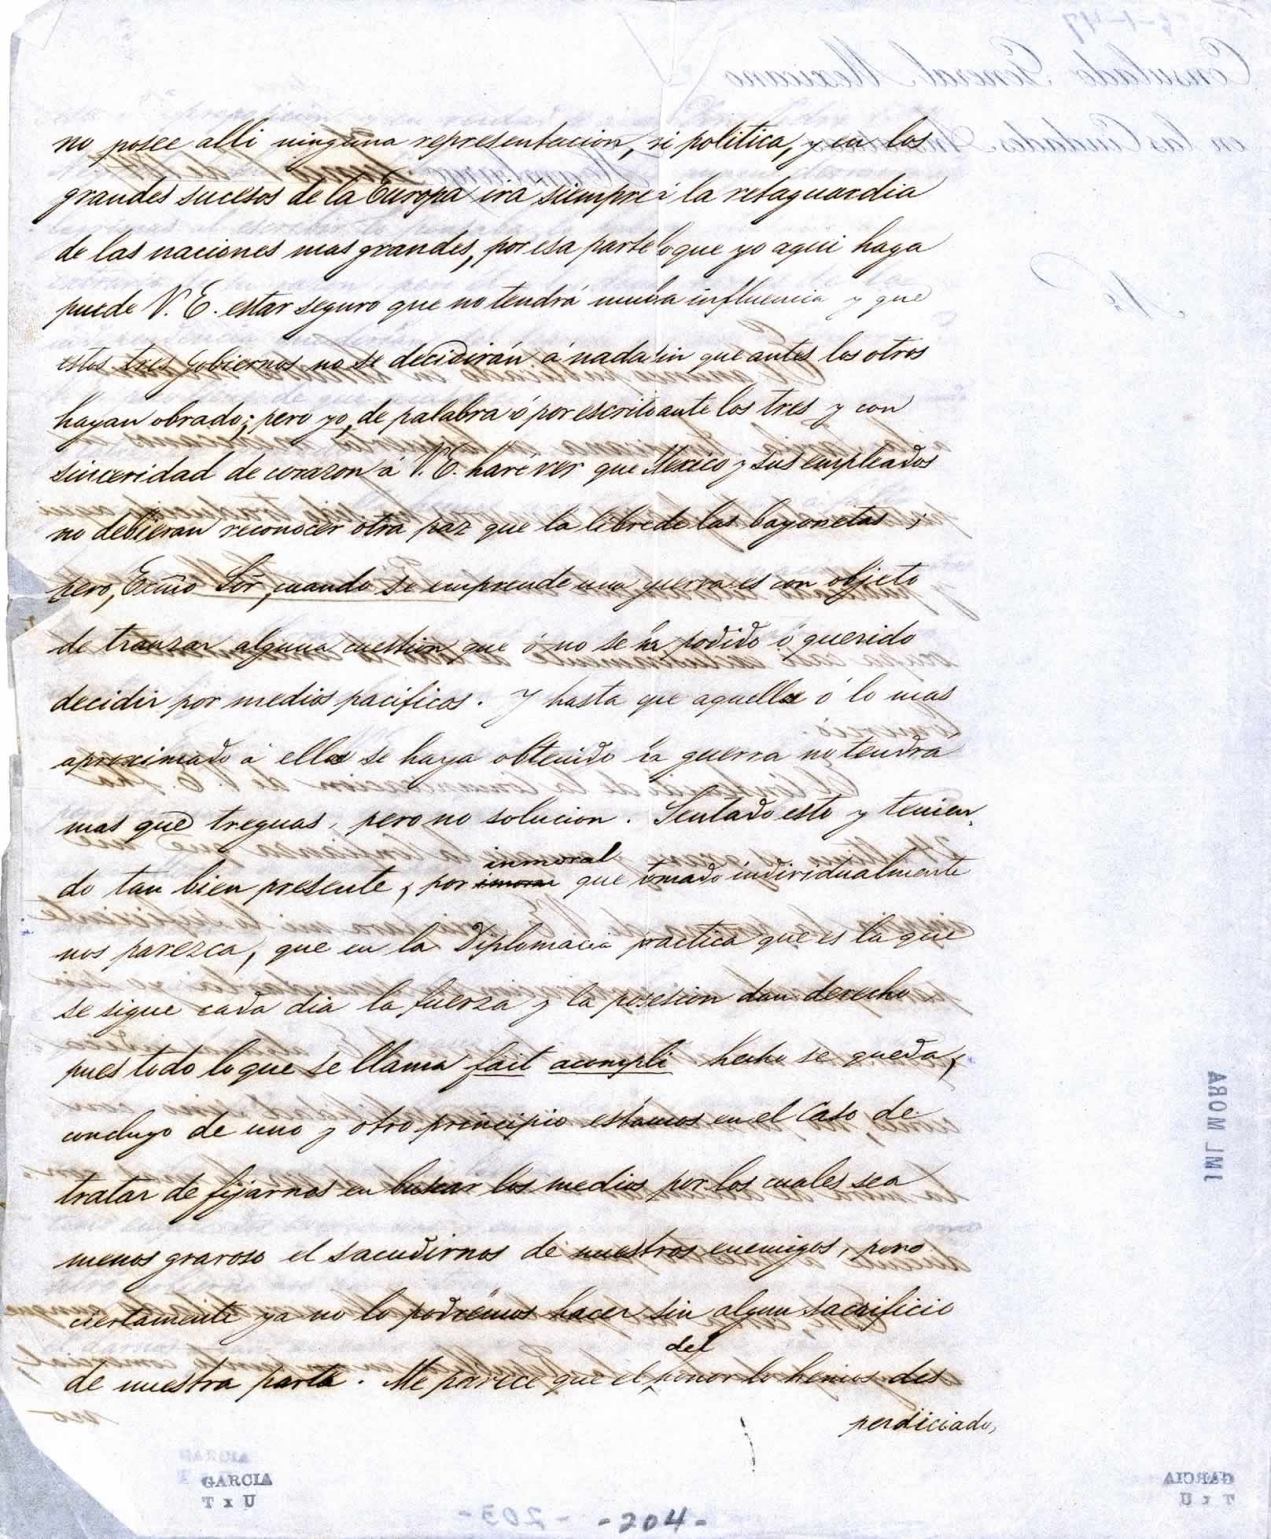 no posee alli ninguna representacion, ni politica, y en los
grandes sucesos de la Europa irá siempre á la retaguardia
de las naciones mas grandes, por esa parte lo que yo aqui haga
puede V. E. estar seguro que no tendrá mucha influencia y que
estos tres gobiernos no se decidirán á nada sin que antes los otros
hayan obrado; pero yo, de palabra ó por escrito ante los tres y con
sinceridad de corazon á V. E. haré ver que Mexico y sus empleados
no debieran reconocer otra paz que la libre de las bayonetas;
pero, Excmo Sor, cuando se emprende una guerra es con objeto
de tranzar alguna cuestion que ó no se ha podido ó querido
decidir por medios pacificos. Y hasta que aquello ó lo mas
aproximado á ello se haya obtenido la guerra no tendra
mas que treguas, pero no solucion. Sentado esto y tenien-
do tan bien presente, por inmoral que tomado individualmente
nos parezca, que en la Diplomacia practica que es la que
se sigue cada dia la fuerza y la posesion dan derecho
pues todo lo que se llama fait acompli hecho se queda,
concluyo de uno y otro principio estamos en el caso de
tratar de fijarnos en buscar los medios por los cuales sea
menos gravoso el sacudirnos de nuestros enemigos, pero
ciertamente ya no lo podrémos hacer sin algun sacrificio
de nuestra parte. Me parece que el del honor lo hemos des
perdiciado,
GARCIA
T x U
-204-